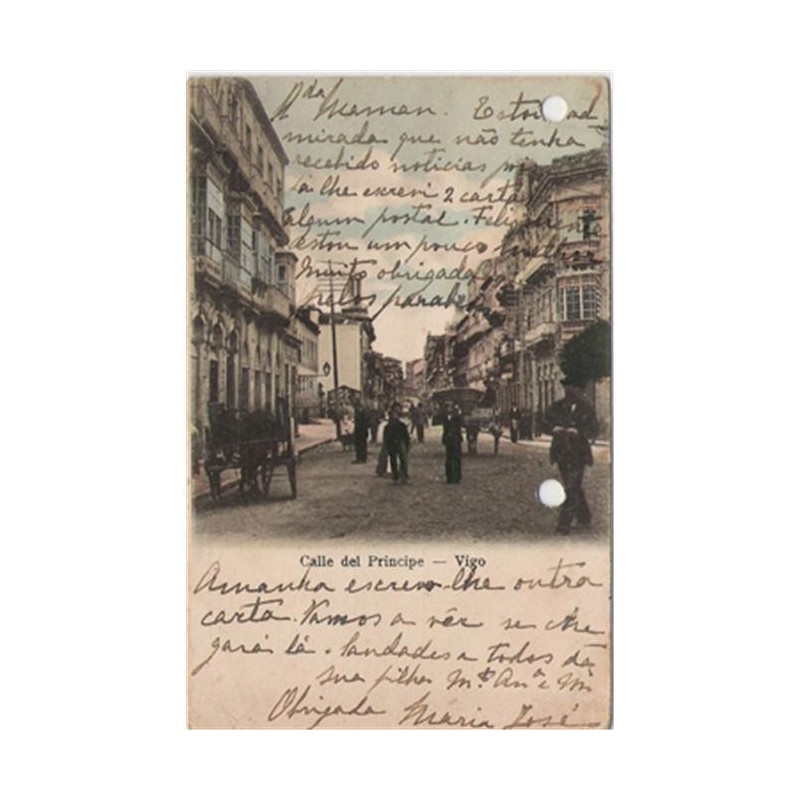 Maman. Estou
mirada que não tenha
recebido noticias
já lhe escrevi 2 cartas
algum postal. Felizmente
estou um pouco melhor
Muito obrigada
pelos parabens
Calle del Príncipe — Vigo
Amanha escrevo-lhe outra
carta. Vamos a vêr se che
gará lá. Saudades a todos da
sua filha Mª Anª e
Obrigada Maria José